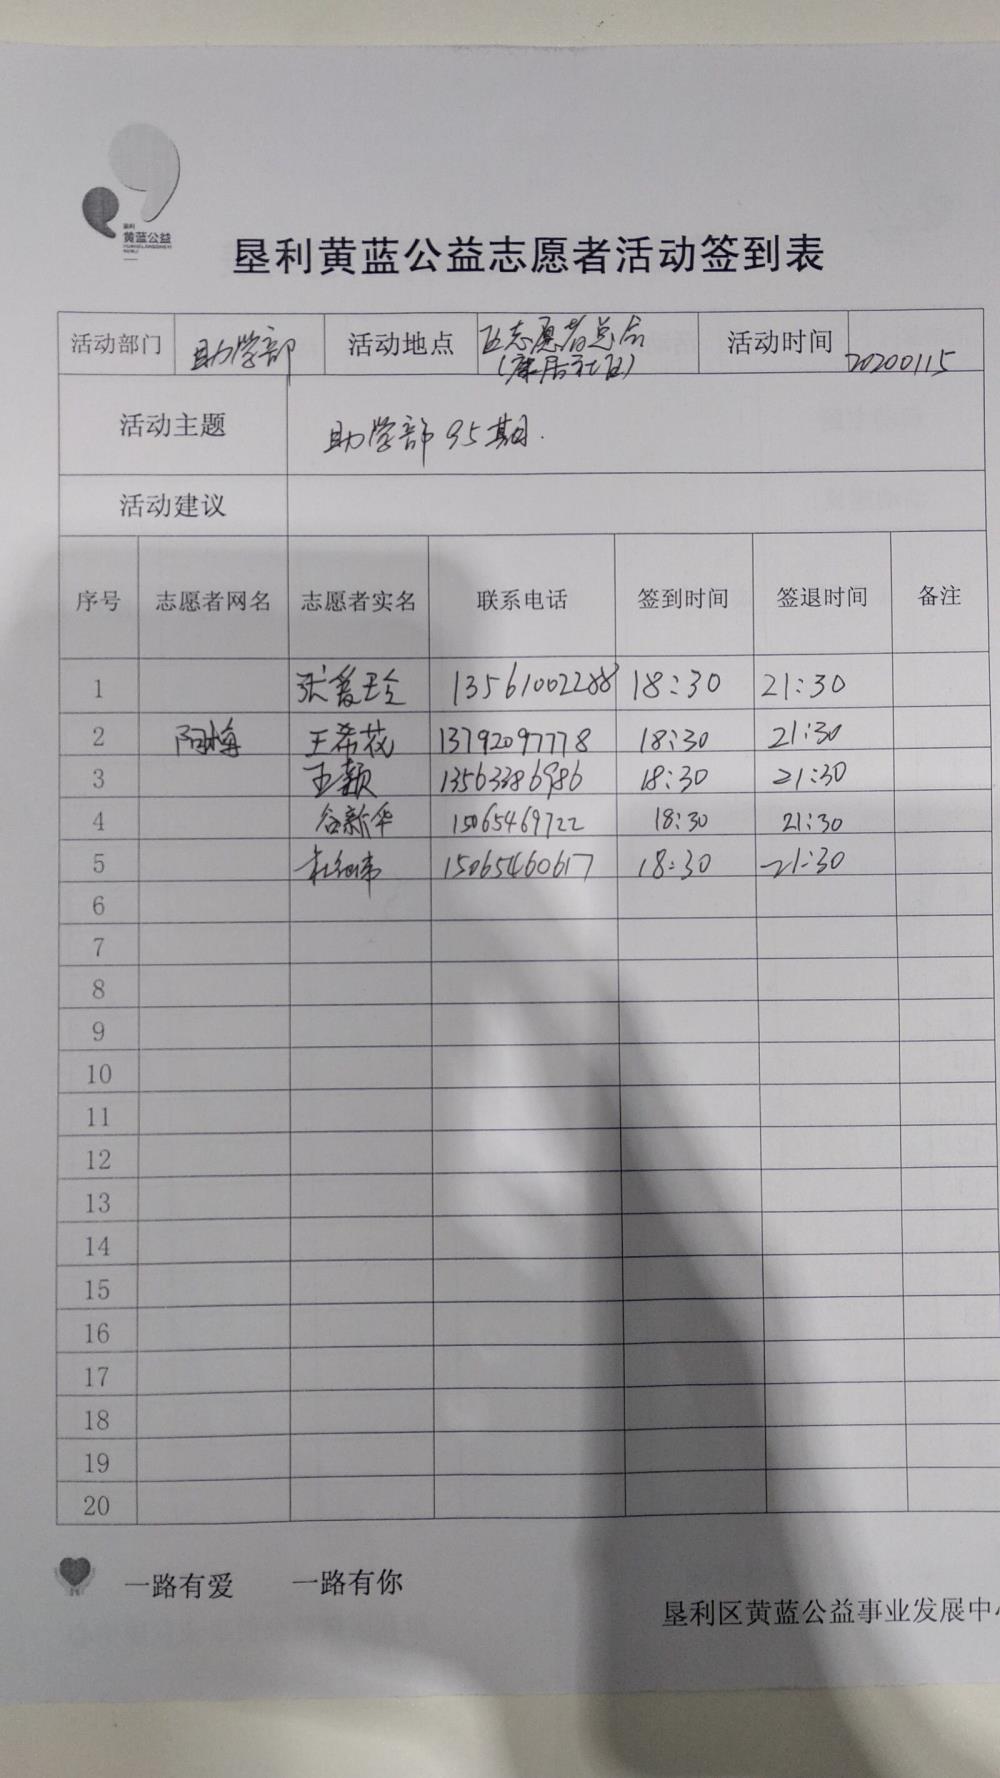 垦利
黄蓝公益
垦利黄蓝公益志愿者活动签到表
活动部门 助学部 活动地点 区志愿者总后 (康居社区) 活动时间 20200115
活动主题 助学部95期.
活动建议
序号 志愿者网名 志愿者实名 联系电话 签到时间 签退时间 备注
1 张爱玲 13561002288 18:30 21:30
2 阿梅 王希花 13792097778 18:30 21:30
3 王颖 13563386986 18:30 21:30
4 谷新华 15065469722 18:30 21:30
5 15065460617 18:30 21:30
6
7
8
9
10
11
12
13
14
15
16
17
18
19
20
一路有爱 一路有你
垦利区黄蓝公益事业发展中